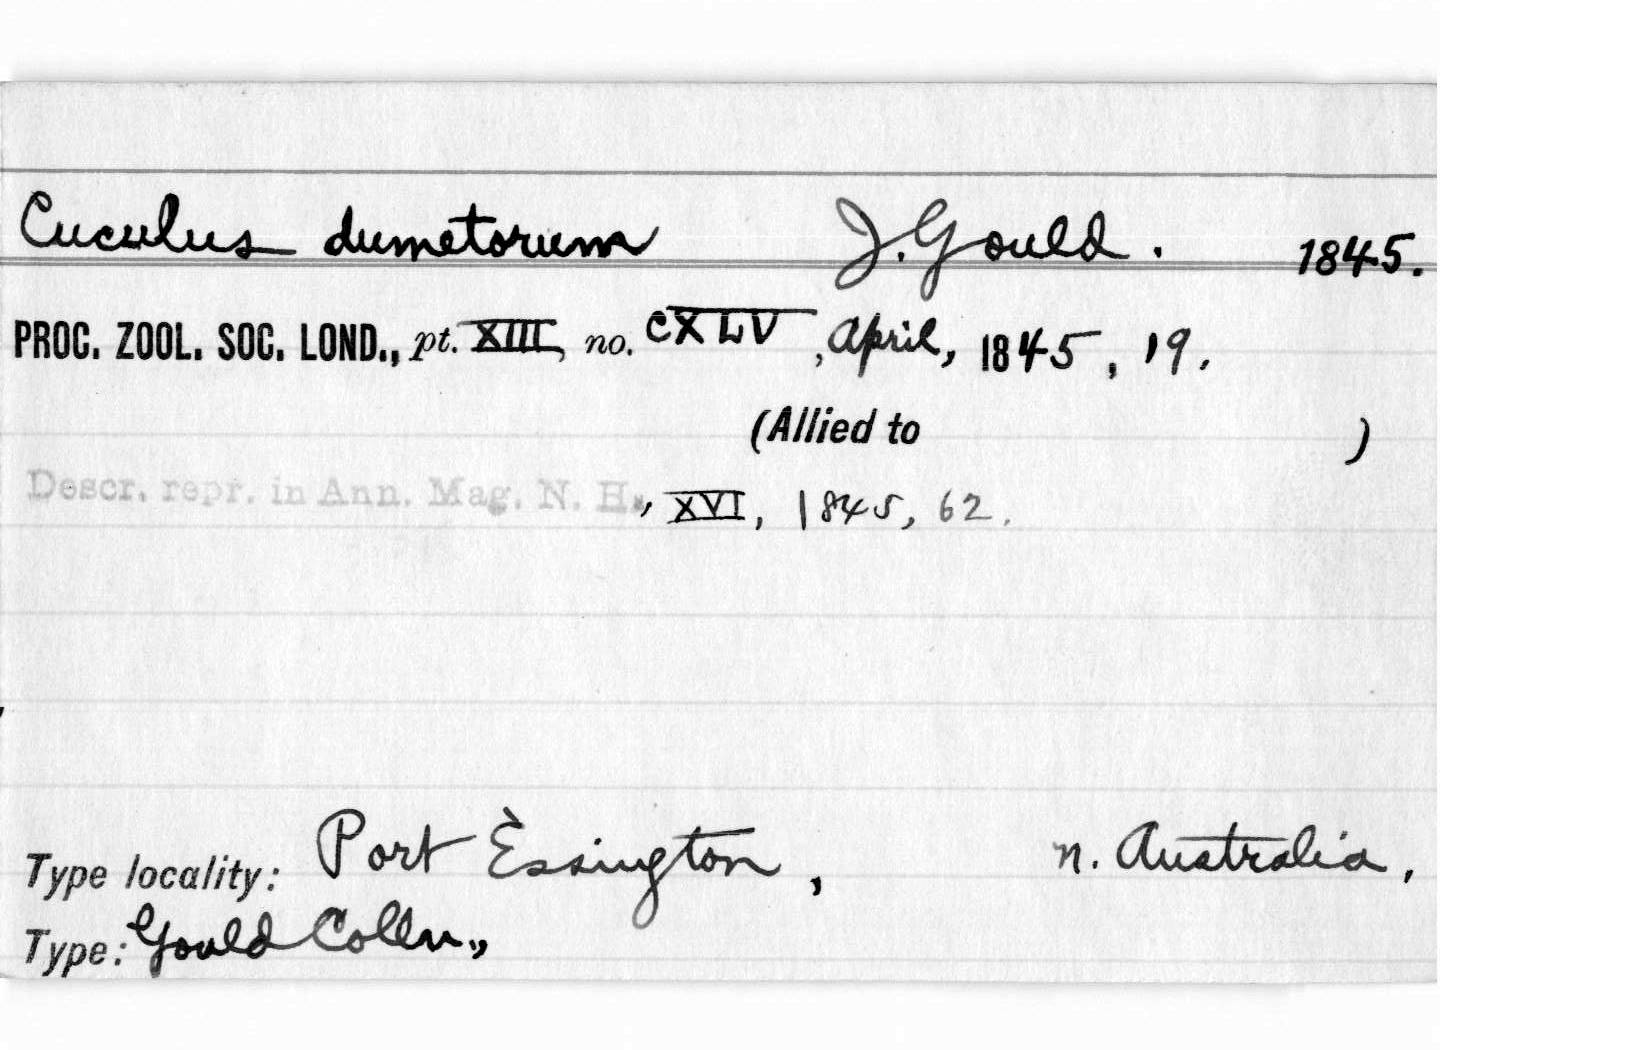 Cuculus dumetorum J. Gould. 1845.
PROC. ZOOL. SOC. LOND., pt. XIII, no. CXLV, April, 1845, 19.
(Allied to )
Descr. repr. in Ann. Mag. N. H., XVI, 1845, 62.
Type locality: Port Essington, n. Australia,
Type: Gould Colln.,